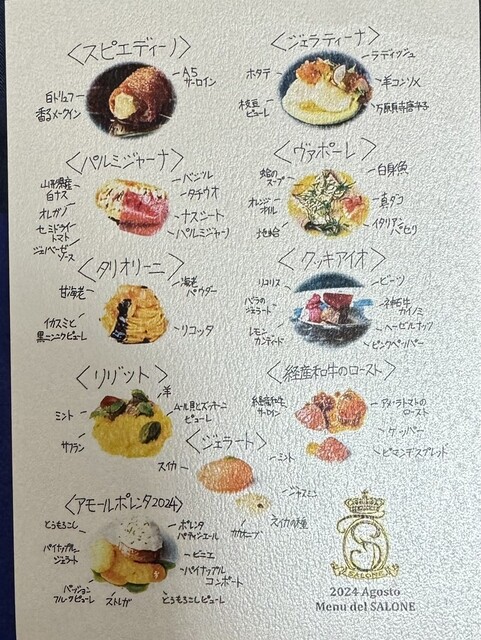 〈スピエディーノ〉
A5
サーロイン
白トリュフ
香るメークイン
〈ジェラティーナ〉
ラディッシュ
ホタテ
羊コンソメ
枝豆
ピューレ
万願寺唐辛子
〈パルミジャーナ〉
山形県産
白ナス
バジル
タチウオ
オレガノ
ナスシート
セミドライ
トマト
パルミジャーノ
ジェノベーゼ
ソース
〈ヴァポーレ〉
蛤の
スープ
白身魚
オレンジ
オイル
真ダコ
地蛤
イタリアン
パセリ
〈タリオリーニ〉
甘海老
海老
パウダー
イカスミと
黒ニンニクピューレ
リコッタ
〈クッキアイオ〉
リコリス
ビーツ
バラの
ジェラート
神石牛
カイノミ
レモン
カンディート
ヘーゼルナッツ
ピンクペッパー
〈リゾット〉
羊
ミント
ムール貝とズッキーニ
ピューレ
サフラン
〈経産和牛のロースト〉
経産和牛
サーロイン
アメーラトマトの
ロースト
ケッパー
ピマンデスプレット
〈ジェラート〉
スイカ
ミント
ジャスミン
スイカの種
〈アモールポレンタ2024〉
とうもろこし
ポレンタ
パティシエール
パイナップル
ジェラート
ビニエ
パイナップル
コンポート
パッション
フルーツピューレ
ストレガ
とうもろこしピューレ
S
SALONE
2024 Agosto
Menu del SALONE